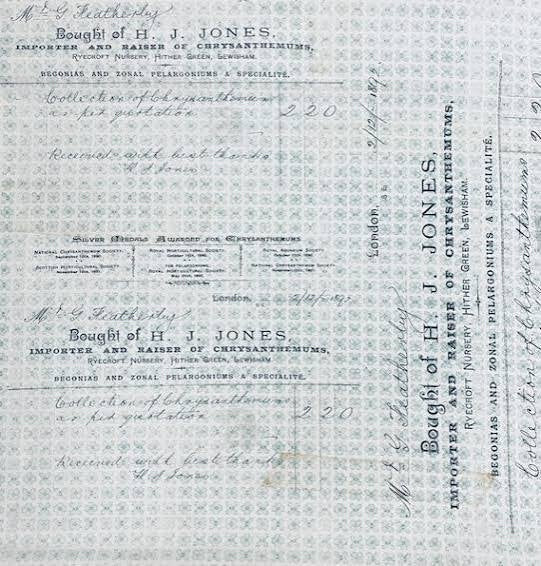 Mr G Featherby
Bought of H. J. JONES,
IMPORTER AND RAISER OF CHRYSANTHEMUMS,
RYECROFT NURSERY, HITHER GREEN, LEWISHAM.
BEGONIAS AND ZONAL PELARGONIUMS A SPECIALITÉ.
Collection of Chrysanthemums
as per quotation 2 2 0
Received with best thanks
H J Jones
SILVER MEDALS AWARDED FOR CHRYSANTHEMUMS
NATIONAL CHRYSANTHEMUM SOCIETY, ROYAL HORTICULTURAL SOCIETY,
SCOTTISH HORTICULTURAL SOCIETY, FOR PELARGONIUMS,
ROYAL HORTICULTURAL SOCIETY,
London, 2/12/1892
Mr G Featherby
Bought of H. J. JONES,
IMPORTER AND RAISER OF CHRYSANTHEMUMS,
RYECROFT NURSERY, HITHER GREEN, LEWISHAM
BEGONIAS AND ZONAL PELARGONIUMS A SPECIALITÉ.
Collection of Chrysanthemums
as per quotation 2 2 0
Received with best thanks
H J Jones
London, 2/12/1892
Mr G Featherby
Bought of H. J. JONES,
IMPORTER AND RAISER OF CHRYSANTHEMUMS,
RYECROFT NURSERY, HITHER GREEN, LEWISHAM.
BEGONIAS AND ZONAL PELARGONIUMS A SPECIALITÉ.
Collection of Chrysanthemums 2 2 0